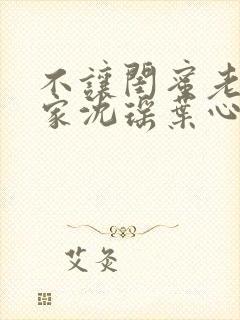 不讓閨蜜老
家沈瑶葉心
艾灸